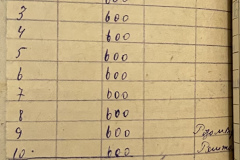 600
3 600
4 600
5 600
6 600
7 600
8 600
9 600
10. 600